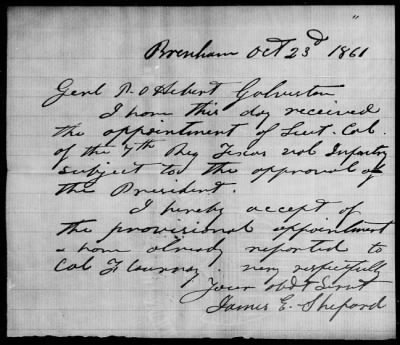 Brenham Oct 23d 1861
Genl P. O Hebert Galveston
I have this day received
the appointment of Lieut. Col.
of the Reg Texas vol Infantry
subject to the approval of
the President.
I hereby accept of
the provisional appointment
& have already reported to
Col Flournoy. very respectfully
Your obdt Servt
James E. Shepard